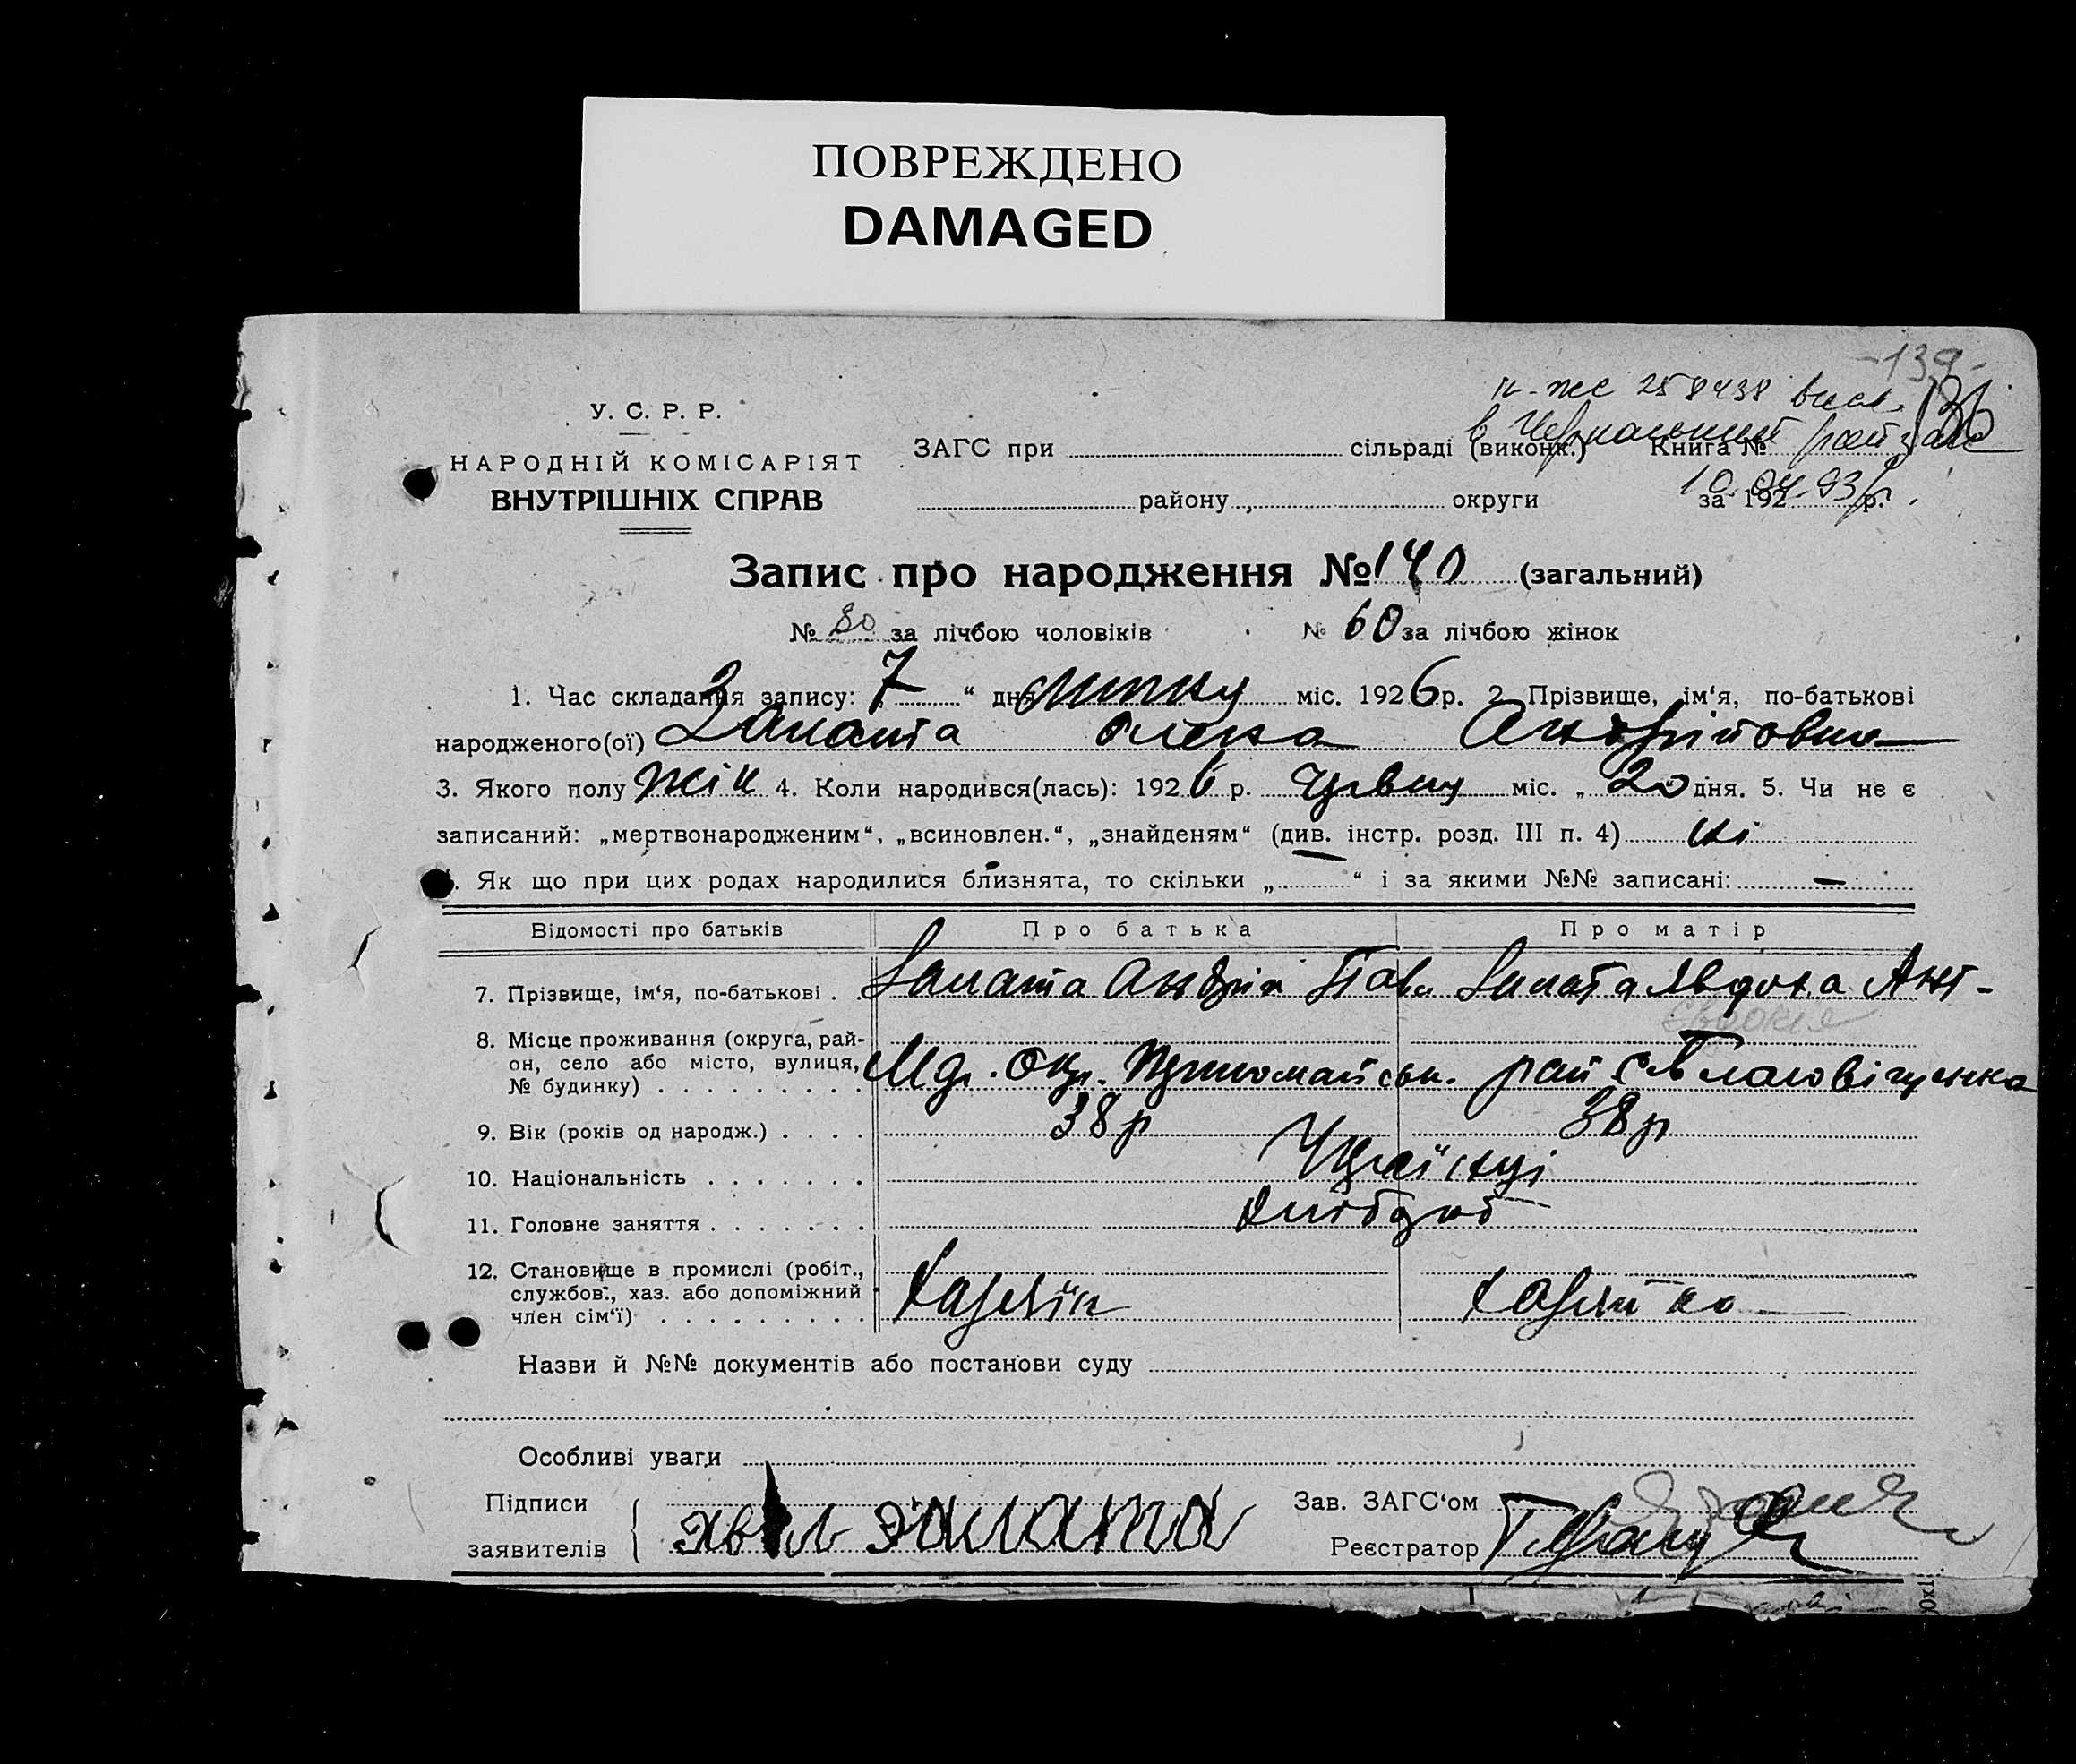 ПОВРЕЖДЕНО
DAMAGED
-139-
У. С. Р. Р.
НАРОДНІЙ КОМІСАРІЯТ
ВНУТРІШНІХ СПРАВ
ЗАГС при сільраді (виконк.) Книга №
району округи за 192 р.
Запис про народження № 140 (загальний)
№ 80 за лічбою чоловіків № 60 за лічбою жінок
1. Час складання запису: „ 7 “ дня липню міс. 1926 р. 2. Прізвище, ім‘я, по-батькові
народженого(ої) Олена Андрійовна
3. Якого полу жін 4. Коли народився(лась): 1926 р. міс. „ 20 дня. 5. Чи не є
записаний: „мертвонародженим“, „всиновлен.“, „знайденям“ (див. інстр. розд. III п. 4) ні
. Як що при цих родах народилися близнята, то скільки „ “ і за якими №№ записані: —
Відомості про батьків Про батька Про матір
7. Прізвище, ім‘я, по-батькові Андрій Пав. Явдоха Ант-
Євдокія
8. Місце проживання (округа, рай-
он, село або місто, вулиця,
№ будинку) окр. Первомайськ. рай с
9. Вік (років од народж.) 38 р 38 р
10. Національність Українці
11. Головне заняття хлібороб
12. Становище в промислі (робіт.,
службов., хаз. або допоміжний
член сім‘ї) Хазяїн Хазяйка
Назви й №№ документів або постанови суду
Особливі уваги
Підписи
заявителів
Зав. ЗАГС‘ом
Реєстратор